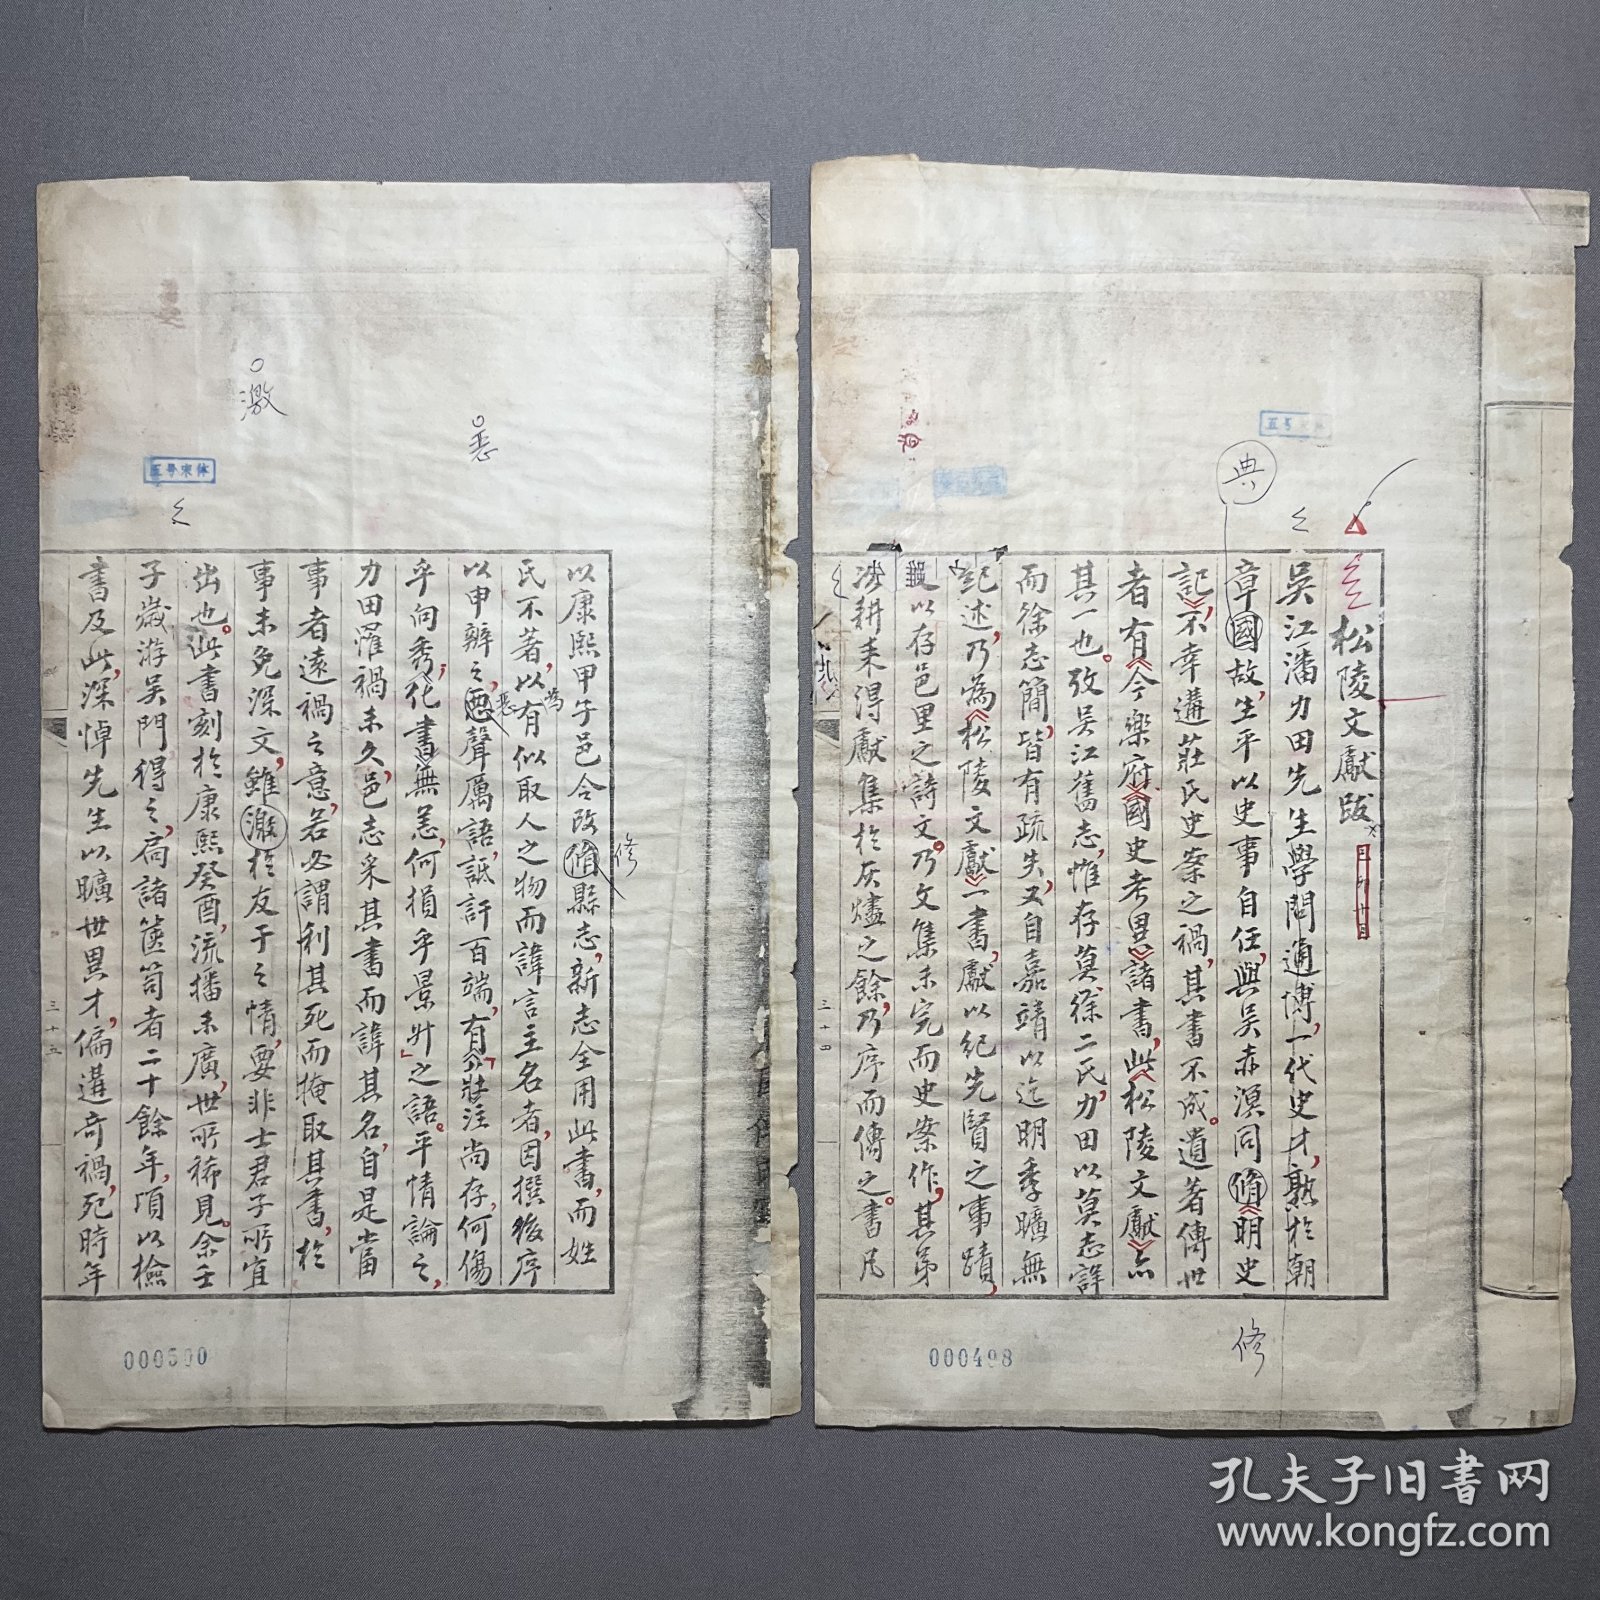 松陵文獻跋
吳江潘力田先生學問通博，一代史才，熟於朝
章國故，生平以史事自任，與吳赤溟同脩《明史
記》，不幸遘莊氏史案之禍，其書不成。遺著傳世
者有《今樂府》《國史考異》諸書，此《松陵文獻》亦
其一也。攷吳江舊志，惟存莫、徐二氏，力田以莫志詳
而徐志簡，皆有疏失，又自嘉靖以迄明季曠無
紀述，乃為《松陵文獻》一書，獻以紀先賢之事蹟，
以存邑里之詩文。乃文集未完而史案作，其弟
耕耒得獻集於灰燼之餘，乃序而傳之。書凡
典
修
五号
000498
三十四
以康熙甲子邑令改脩縣志，新志全用此書，而姓
氏不著，以有似取人之物而諱言主名者，因撰後序
以申辨之，惡聲厲語，詆訐百端，有「莊注尚存，何傷
乎向秀，化書無恙，何損乎景升」之語。平情論之，
力田罹禍未久，邑志采其書而諱其名，自是當
事者遠禍之意，若必謂利其死而掩取其書，於
事未免深文，雖激於友于之情，要非士君子所宜
出也。此書刻於康熙癸酉，流播未廣，世所稀見。余壬
子歲游吳門，得之，扃諸篋笥者二十餘年，頃以檢
書及此，深悼先生以曠世異才，偏遘奇禍，死時年
激
惡
為
惡
修
五号宋体
三十五
000500
孔夫子旧书网
www.kongfz.com